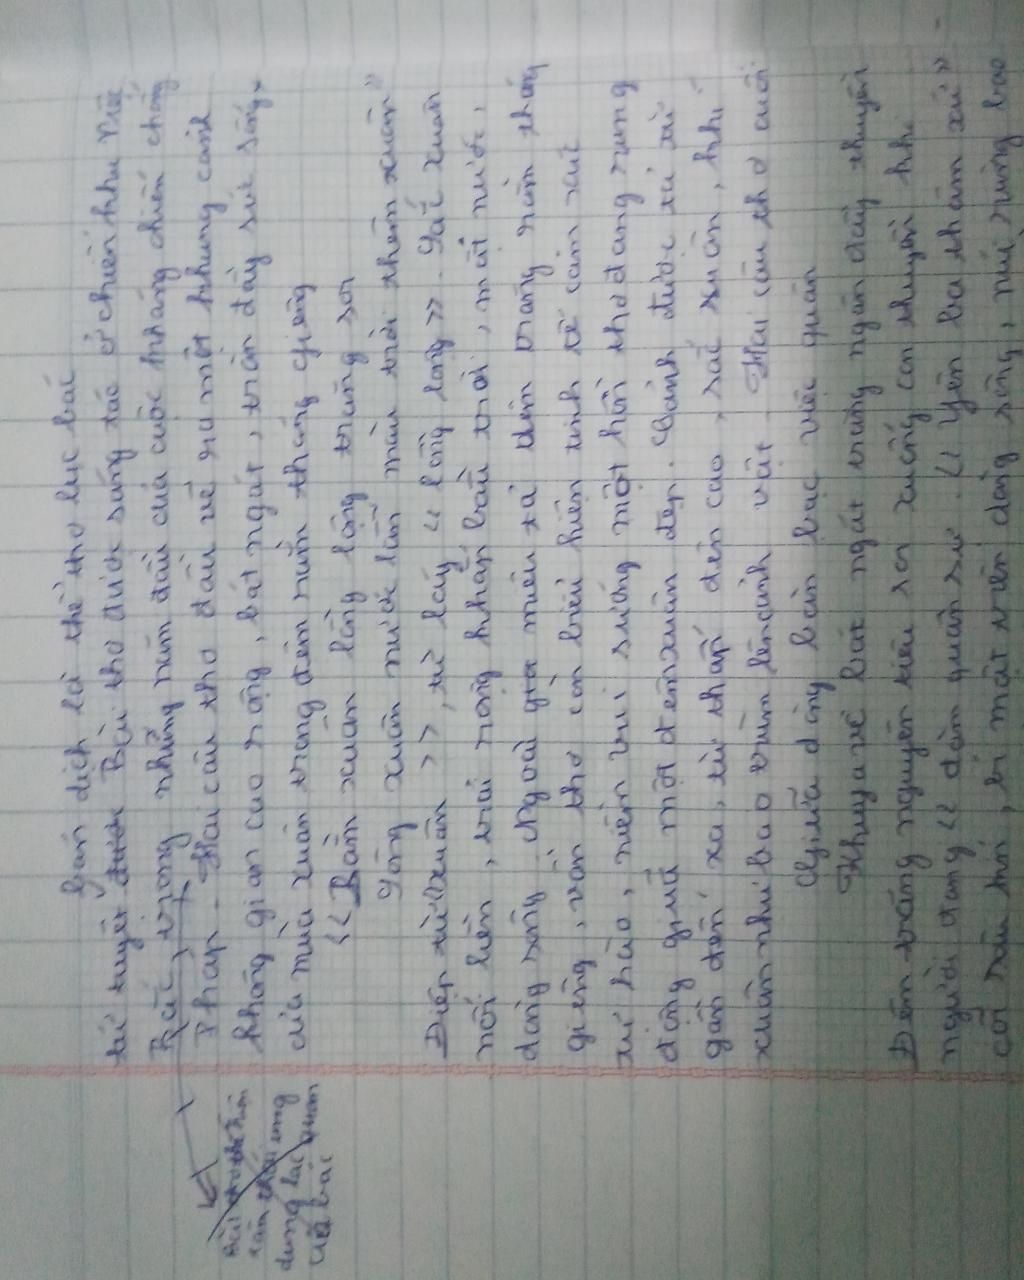 bản dịch là thể thơ lục bát
tứ tuyệt đường Bài thơ được sáng tác ở chiến khu Việt
Bắc, trong những năm đầu của cuộc kháng chiến chống
Pháp. Hai câu thơ đầu vẽ ra một khung cảnh
không gian cao rộng, bát ngát, tràn đầy sức sống
của mùa xuân trong đêm rằm tháng giêng
"Rằm xuân lồng lộng trăng soi
Sông xuân nước lẫn màu trời thêm xuân"
Điệp từ "xuân", từ láy "lồng lộng". Sắc xuân
nối liền, trải rộng khắp bầu trời, mặt nước,
dòng sông. Ngoài giá miêu tả đêm trăng rằm tháng
giêng, vần thơ còn biểu hiện tinh tế cảm xúc
tự hào, niềm vui sướng một hồn thơ đang rung
động giữa một đêm xuân đẹp. Cảnh được tả từ
gần đến xa, từ thấp đến cao, sắc xuân, khí
xuân như bao trùm lên cảnh vật. Hai câu thơ cuối
Giữa dòng bàn bạc việc quân
Khuya về bát ngát trăng ngân đầy thuyền
Đêm trăng nguyên tiêu soi xuống con thuyền khi
người đang "đàm quân sự". "Yên ba thâm xứ"
cõi sâu kín, bí mật trên dòng sông, núi rừng bao
Bài thơ thể hiện
dung lạc quan
của bác